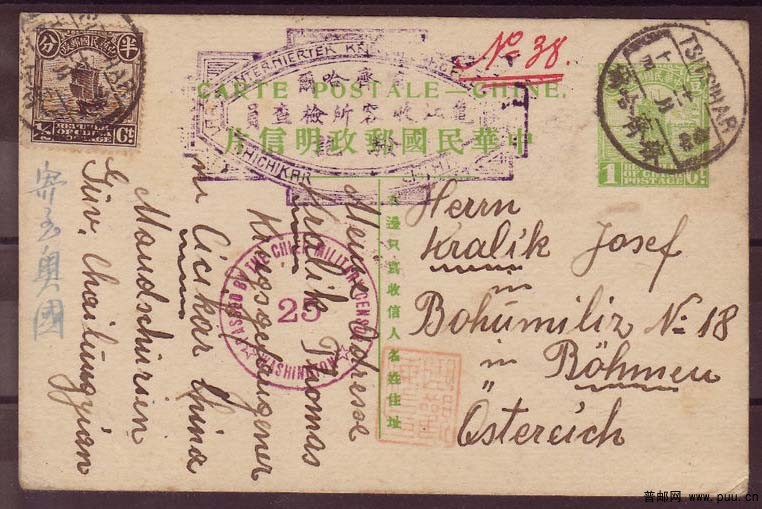 No 38.
CARTE POSTALE — CHINE.
中華民國郵政明信片
右邊只寫收信人名姓住址
半分
1/2 Ct
1 Ct
POSTAGE
INTERNIERTER
哈爾
龍江收容所檢查員
TSITSIHAR
CHIEF MILITARY CENSOR
25
PASSED BY
WASHINGTON
Herrn
Kralik Josef
Bohumiliz No 18
in Böhmen
Österreich
Meine Adresse
Kralik Thomas
Kriegsgefangener
in Cicikar China
Mandschurien
Guv. Chailungjian
寄至奧國
普邮网 www.puu.cn